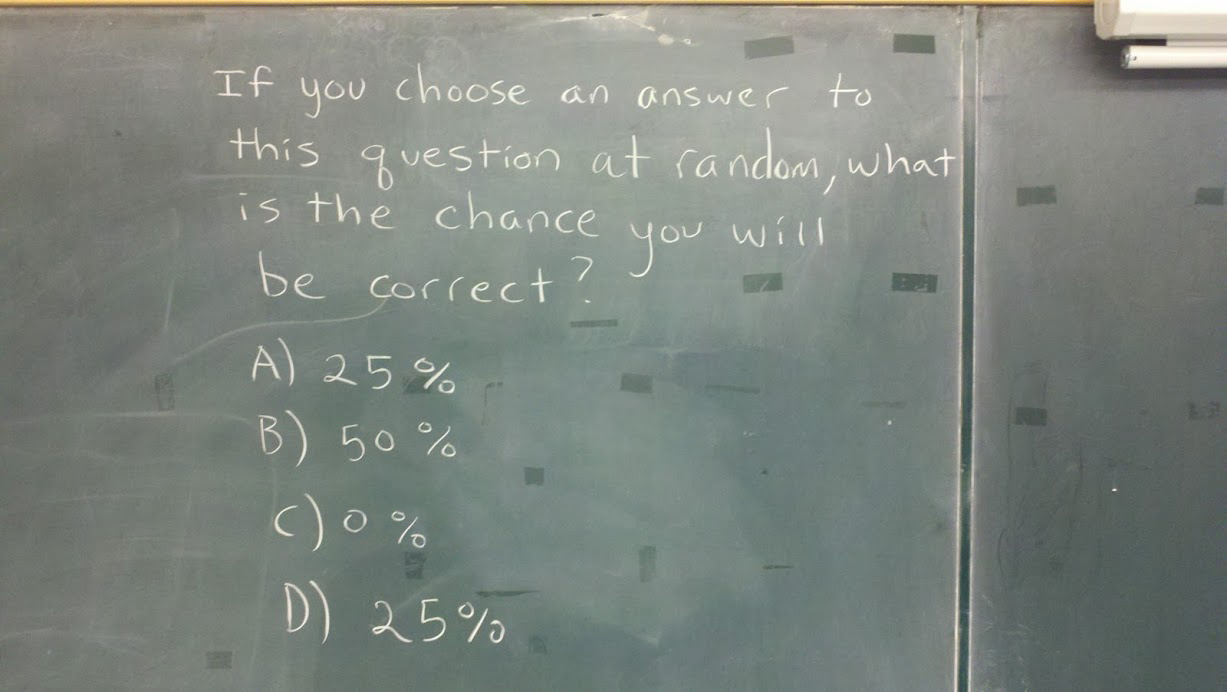 If you choose an answer to
this question at random, what
is the chance you will
be correct?
A) 25%
B) 50%
C) 0%
D) 25%